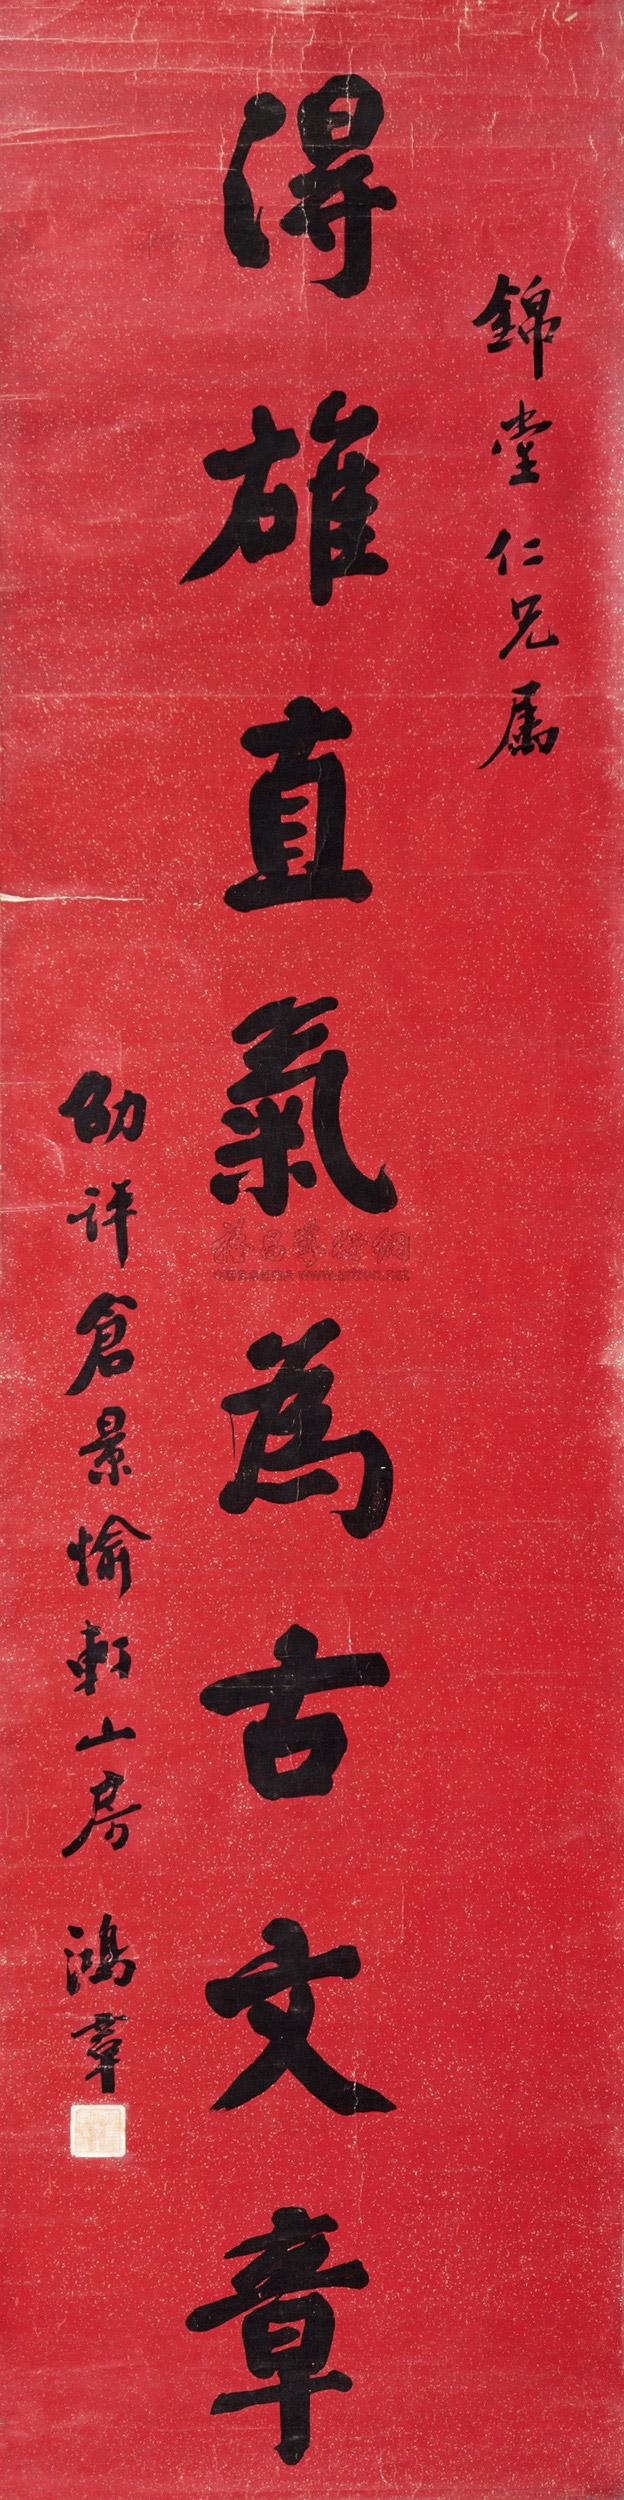 錦堂仁兄屬
得雄直氣為古文章
劭詳倉景愉軒山房 鴻章